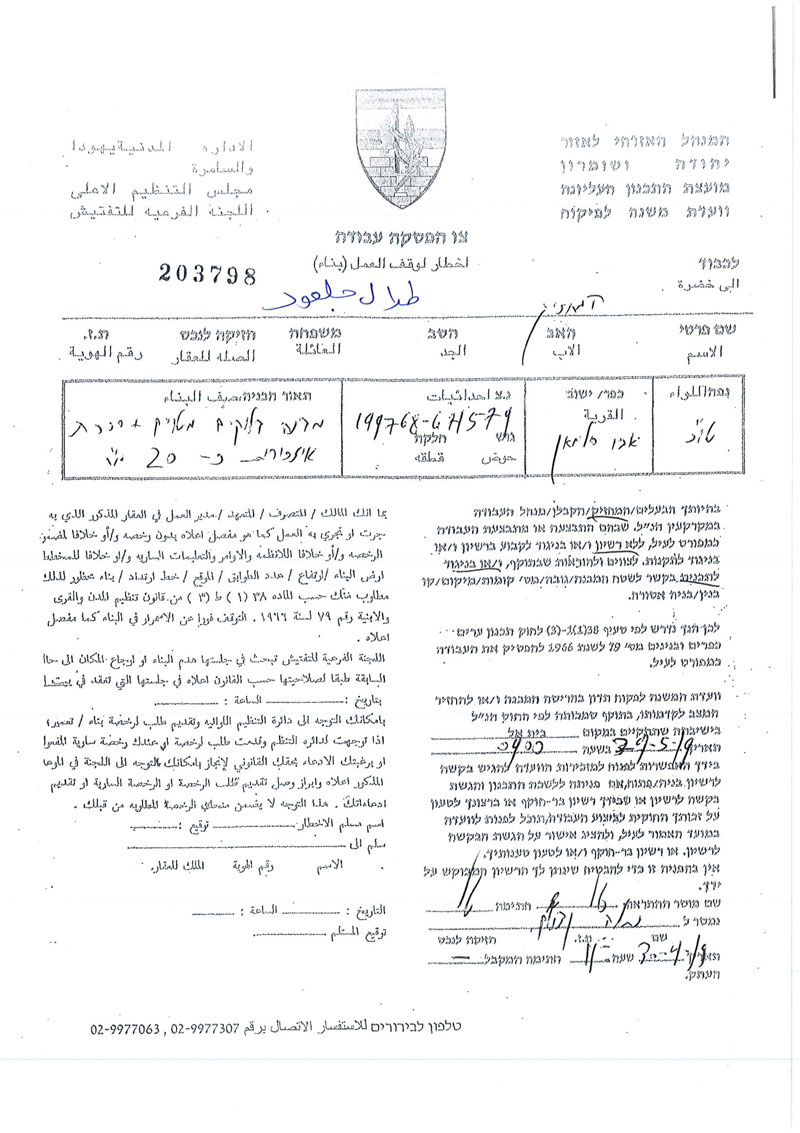 המנהל האזרחי לאזור
יהודה ושומרון
מועצת התכנון העליונה
וועדת משנה לפיקוח
الاداره المدنية يهودا
والسامرة
مجلس التنظيم الاعلى
اللجنة الفرعيه للتفتيش
צו הפסקת עבודה
اخطار لوقف العمل (بناء)
203798
לכבוד
الى حضرة
طلال جلعود
שם פרטי האב הסב משפחה חזיקה לנכס ת.ז.
الاسم الاب الجد العائلة الصله للعقار رقم الهوية
נפה/اللواء כפר/ישוב נ.צ احداثيات תאור הבניה/صيف البناء
القرية
199768-671579
גוש חלקה
حوض قطقه
20
בהיותך הבעלים/המחזיק/הקבלן/מנהל העבודה
במקרקעין הנ"ל, שבהם התבצעה או מתבצעת העבודה
כמפורט לעיל, ללא רשיון ו/או בניגוד לקבוע ברשיון ו/או
בניגוד לתקנות, לצווים ולהוראות שבתוקף, ו/או בניגוד
לתכנית בקשר לשטח המבנה/גובה/מס' קומות/מיקום/קו
בנין/בניה אסורה.
לכן הנך נדרש לפי סעיף 38(1)(ט)-(3) לחוק תכנון ערים
כפרים ובנינים מס' 79 לשנת 1966 להפסיק את העבודה
כמפורט לעיל.
וועדת המשנה לפקוח תדון בהריסת המבנה ו/או להחזיר
המצב לקדמותו, בתוקף סמכותה לפי החוק הנ"ל
בישיבתה שתתקיים במקום בית אל
תאריך 29-5-19 בשעה 0900
בידך האפשרות לפנות למזכירות הוועדה להגיש בקשה
לרשיון בניה/פתוח, אם פניתה ללשכת התכנון והגשת
בקשה לרשיון או שבידך רשיון בר-תוקף או ברצונך לטעון
על זכותך החוקית לביצוע העבודה, תוכל לפנות לוועדה
במועד האמור לעיל, ולהציג אישור על הגשת הבקשה
לרשיון, או רשיון בר-תוקף ו/או לטעון טענותיך.
אין בהפניה זו כדי להבטיח שינתן לך הרשיון המבוקש על
ידך.
שם מוסר ההתראה חתימה
נמסר ל
שם ת.ז. חזיקה לנכס
תאריך 30-4-19 שעה 11 חתימת המקבל
העתק.
بما انك المالك / المتصرف / المتعهد / مدير العمل في العقار المذكور الذي به
جرت او تجري به العمل كما هو مفصل اعلاه بدون رخصه و/أو خلافا لمضمون
الرخصه و/أو خلافا للانظمه والاوامر والتعليمات الساريه و/او خلافا للمخطط
ارض البناء / ارتفاع / عدد الطوابق / الموقع / خط ارتداد / بناء محظور لذلك
مطلوب منك حسب الماده ٣٨ (١) ط (٣) من قانون تنظيم المدن والقرى
والابنية رقم ٧٩ لسنة ١٩٦٦. التوقف فورا عن الاستمرار في البناء كما مفصل
اعلاه.
اللجنة الفرعية للتفتيش تبحث في جلستها هدم البناء او ارجاع المكان الى حالة
السابقة طبقا لصلاحيتها حسب القانون اعلاه في جلستها التي تعقد في
بتاريخ: الساعة:
بامكانك التوجه الى دائرة التنظيم اللوائيه وتقديم طلب لرخصة بناء / تعمير؛
اذا توجهت لدائره التنظيم وقدمت طلب لرخصة او عندك رخصة سارية المفعول
او برغبتك الادعاء بحقك القانوني لإنجاز بامكانك التوجه الى اللجنة في الموعد
المذكور اعلاه وابراز وصل تقديم طلب الرخصة او الرخصة السارية او تقديم
ادعاءاتك. هذا التوجه لا يضمن منحك الرخصة المطلوبه من قبلك.
اسم مسلم الاخطار توقيع:
سلم الى
الاسم رقم الهوية المالك للعقار.
التاريخ: الساعة:
توقيع المستلم
טלפון לבירורים للاستفسار الاتصال برقم 02-9977307, 02-9977063